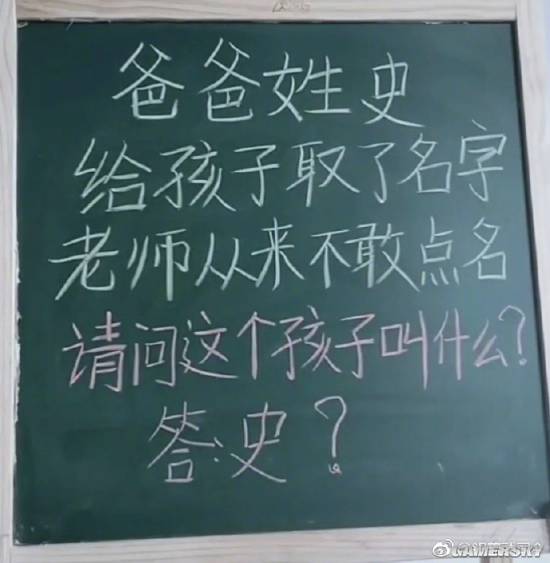 爸爸姓史
给孩子取了名字
老师从来不敢点名
请问这个孩子叫什么?
答:史?
GAMERSKY